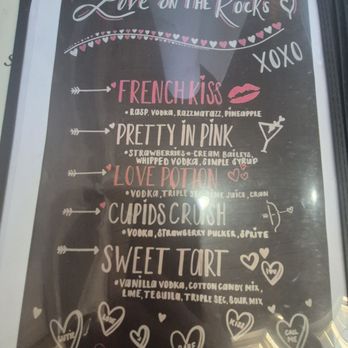 Love on the Rocks
XOXO
FRENCH KISS
• RASP. VODKA, RAZZMATAZZ, PINEAPPLE
PRETTY IN PINK
• STRAWBERRIES + CREAM BAILEYS,
WHIPPED VODKA, SIMPLE SYRUP
LOVE POTION
• VODKA, TRIPLE SEC, LIME JUICE, CRAN
CUPIDS CRUSH
• VODKA, STRAWBERRY PUCKER, SPRITE
SWEET TART
• VANILLA VODKA, COTTON CANDY MIX,
LIME, TEQUILA, TRIPLE SEC, SOUR MIX
CUTIE
KISS
CALL ME